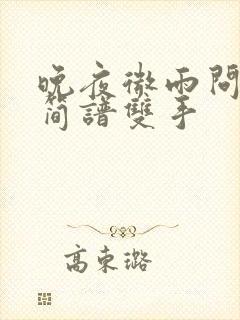 晚夜微雨問
簡譜雙手
高東璐